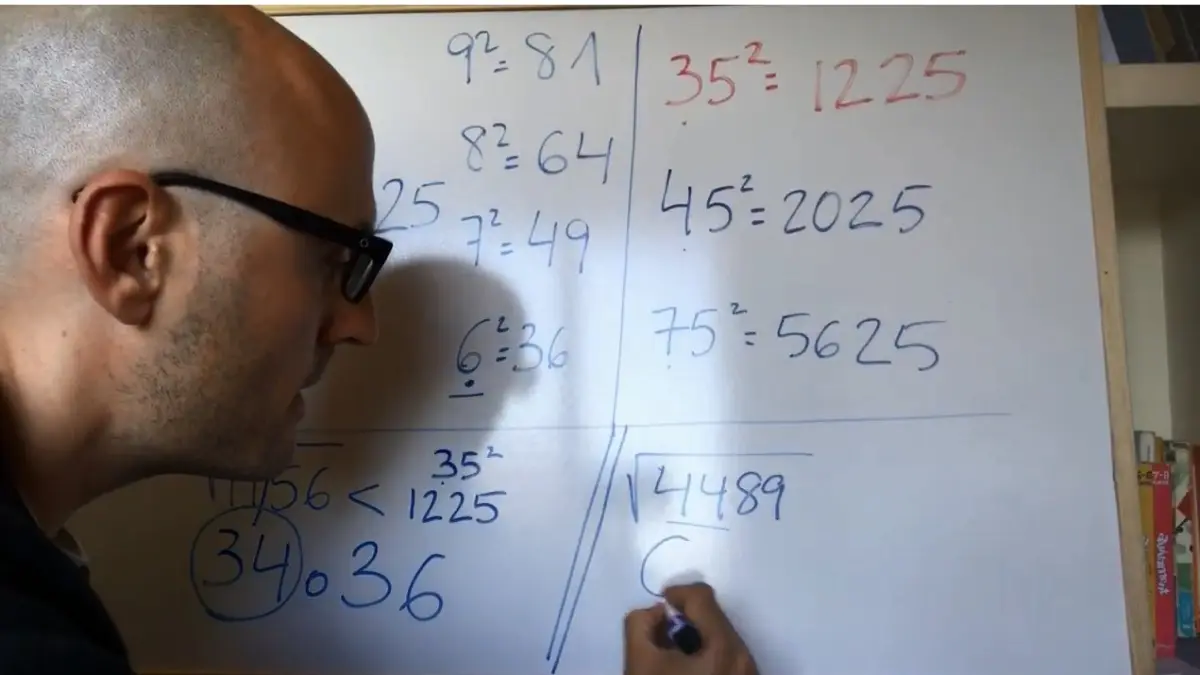 9²= 81
8²= 64
25
7²= 49
6²=36
35²= 1225
45²= 2025
75²= 5625
35²
56 < 1225
34 o 36
√4489
6